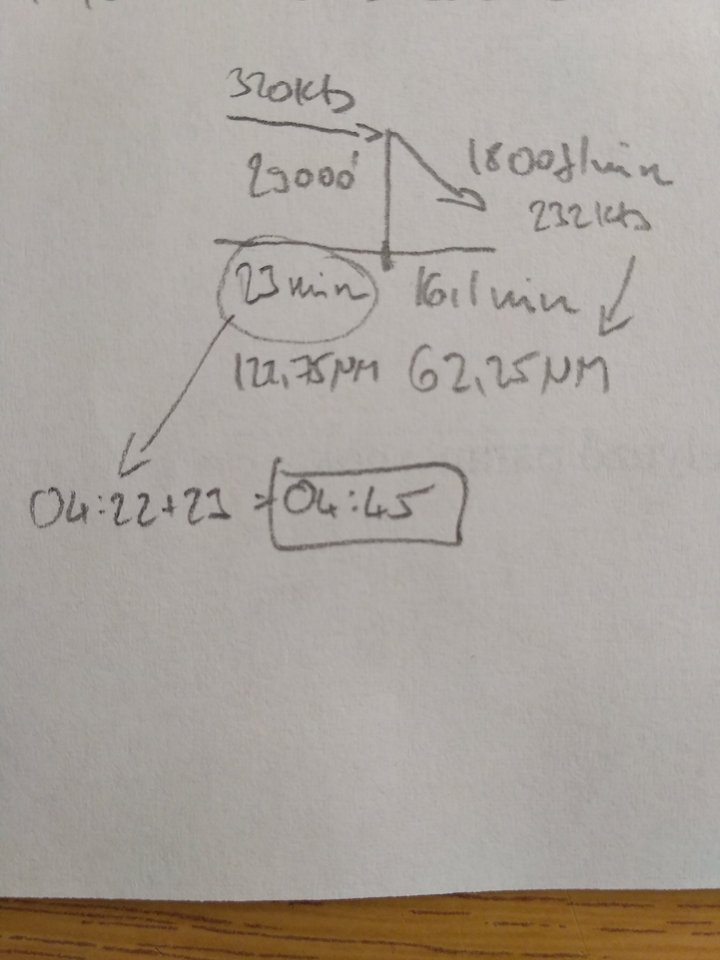 320kts
29000'
1800f/min
232kts
23min 16,1min
122,75NM 62,25NM
04:22+23 = 04:45